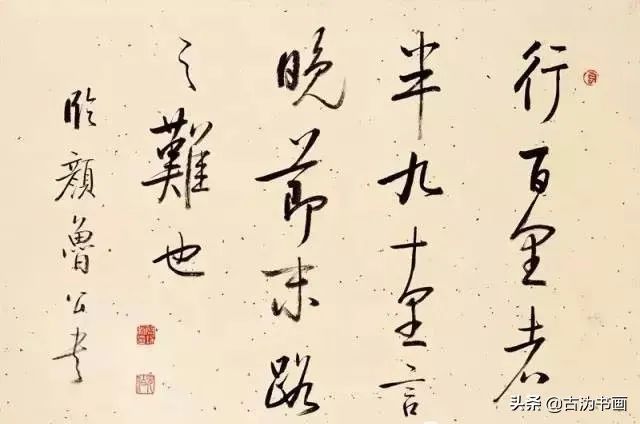 行百里者
半九十里言
晚節末路
之難也
臨顏魯公書
头条 @古沩书画